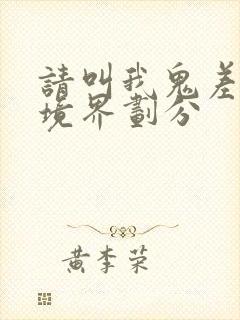 請叫我鬼差
境界劃分
黃李荣